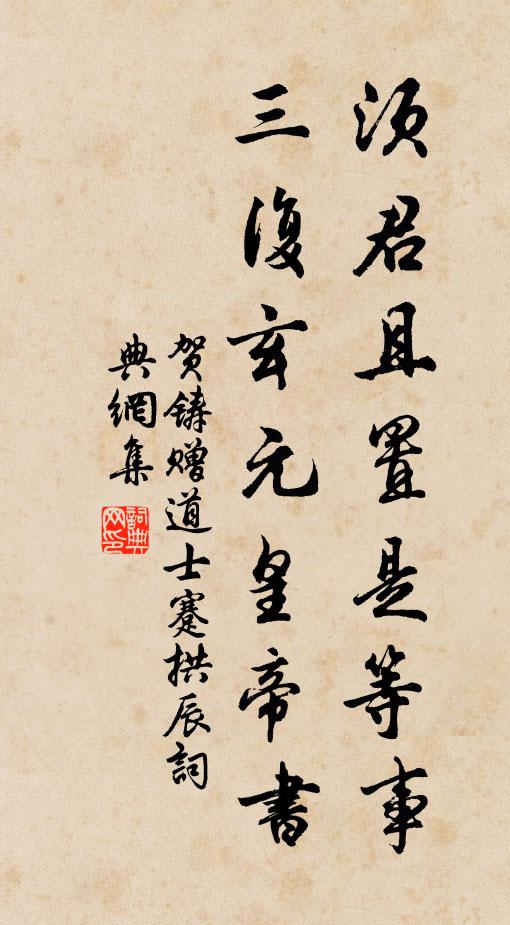 须君且置是等事
三復玄元皇帝書
贺鑄贈道士蹇拱辰詞
典網集
詞典網印